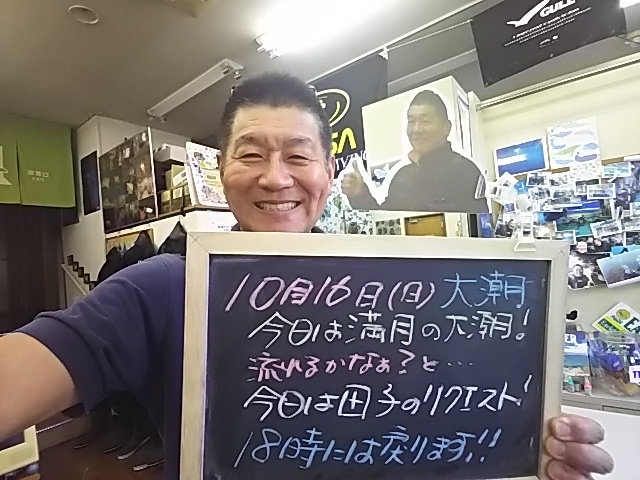 GULL
SA
IVING
10月16日(日) 大潮
今日は満月の大潮!
流れるかなぁ?と…
今日は田子のリクエスト!
18時には戻ります!!